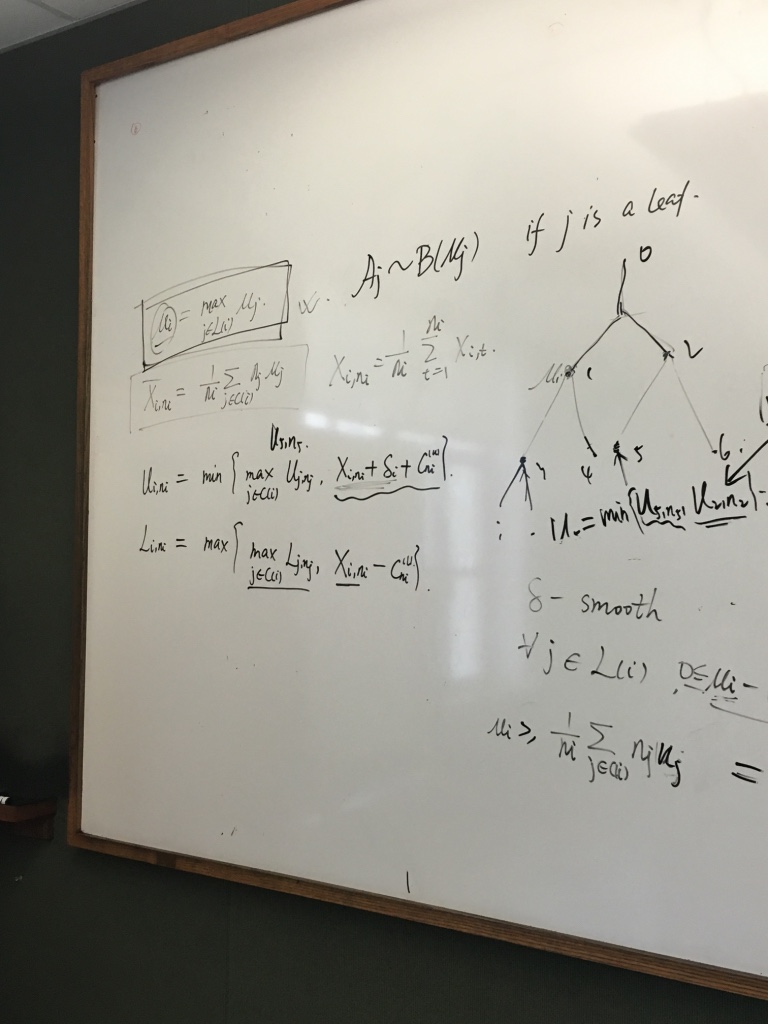 A_j ~ B(μ_j) if j is a leaf.
μ_i = max_{j∈L(i)} μ_j.
w.
X̄_{i,n_i} = 1/n_i Σ_{j∈C(i)} n_j μ_j
X_{i,n_i} = 1/n_i Σ_{t=1}^{n_i} X_{i,t}.
U_{5,n_5}.
U_{i,n_i} = min { max_{j∈C(i)} U_{j,n_j}, X_{i,n_i} + δ_i + C_{n_i}^{(u)} }.
L_{i,n_i} = max { max_{j∈C(i)} L_{j,n_j}, X_{i,n_i} − C_{n_i}^{(L)} }.
0
μ_1 1
2
3
4
5
6
= min { U_{5,n_5}, U_{2,n_2} }
δ - smooth
∀ j ∈ L(i), 0 ≤ μ_i −
μ_i ≥ 1/n_i Σ_{j∈C(i)} n_j μ_j =